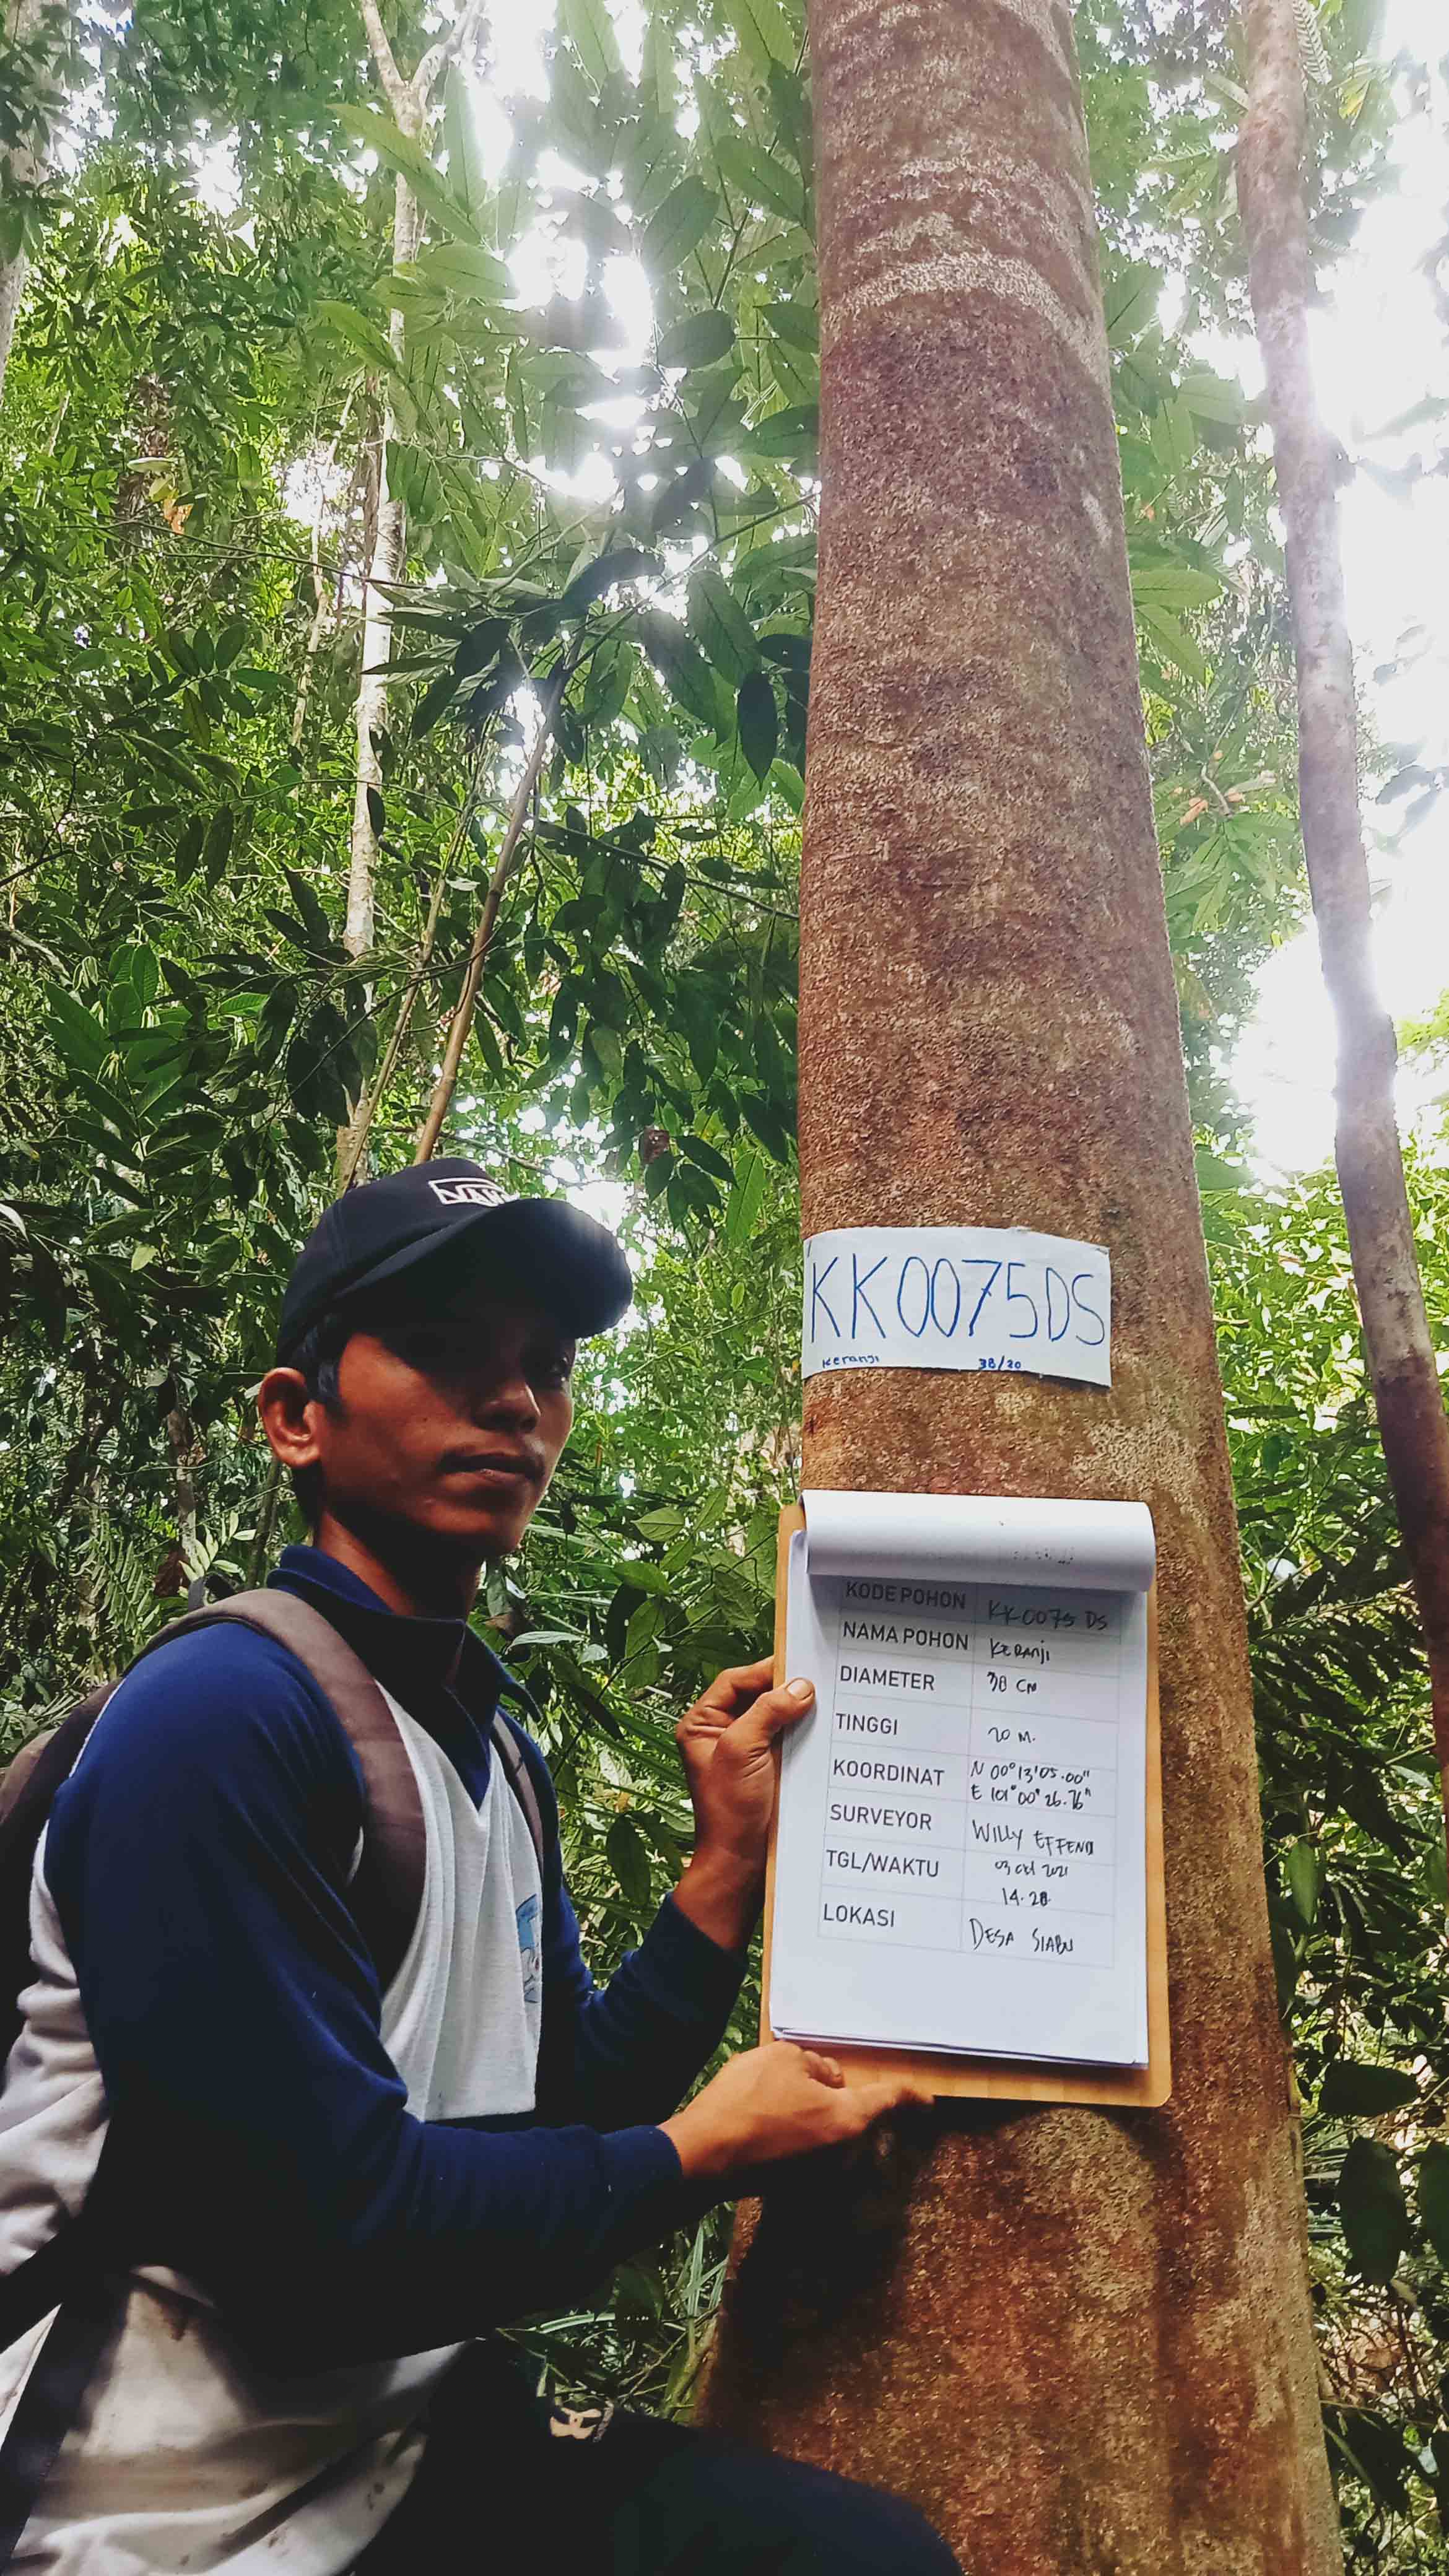 KK0075DS
Keranji 38/20
KODE POHON KK0075 DS
NAMA POHON KERANJI
DIAMETER 38 CM
TINGGI 20 M.
KOORDINAT N 00°13'05.00"
E 101°00'26.76"
SURVEYOR WILLY EFFENDI
TGL/WAKTU 03 okt 2021
14.28
LOKASI DESA SIABU